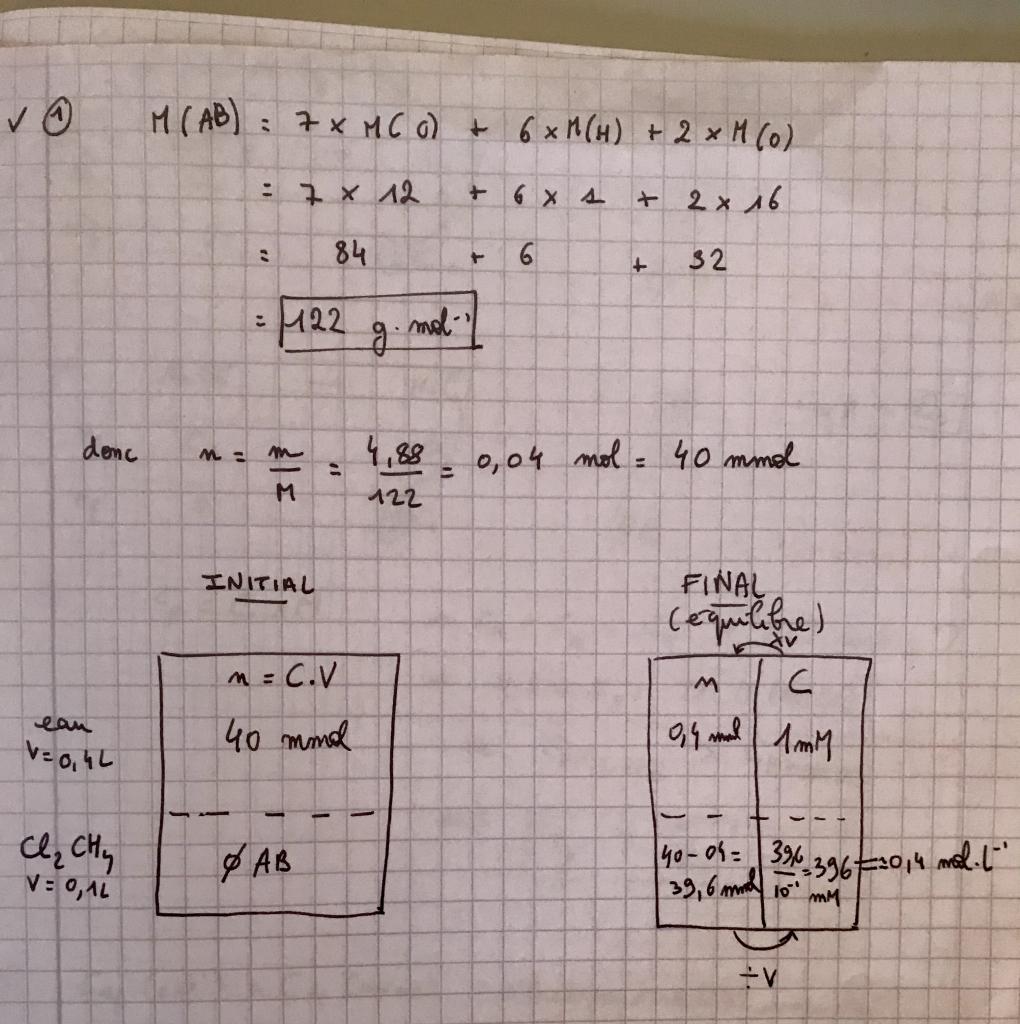 ✓ ① M(AB) = 7 x M(C) + 6 x M(H) + 2 x M(O)
= 7 x 12 + 6 x 1 + 2 x 16
= 84 + 6 + 32
= 122 g. mol⁻¹
donc n = m/M = 4,88/122 = 0,04 mol = 40 mmol
INITIAL
eau
V = 0,4L
n = C.V
40 mmol
Cl₂CH₄
V = 0,1L
∅ AB
FINAL
(équilibre)
xV
n C
0,4 mmol 1mM
40-04= 39,6 mmol
39,6/10⁻¹ = 396 mM
= 0,4 mol.l⁻¹
÷V